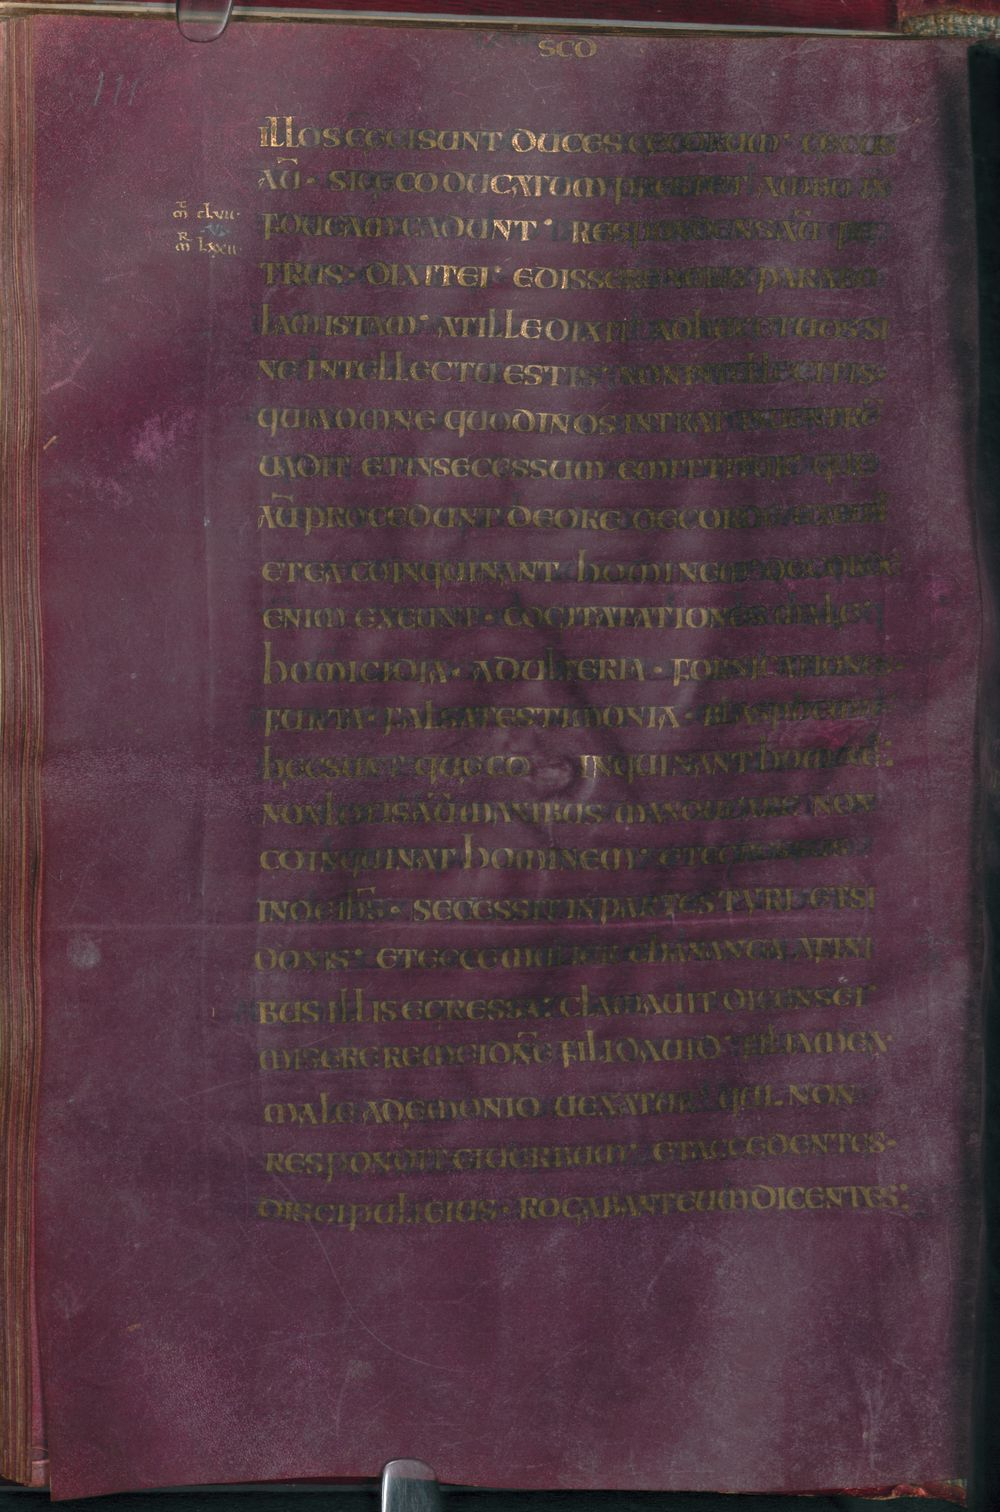 SCO
111
illos ceci sunt duces cecorum · cecus
aū · si ceco ducatum prestet · ambo in
m̄ clvii ·
vi
foueam cadunt · Respondens aū pe
m̄ lxxii ·
trus · dixit ei · edissere nobis parabo
lam istam · at ille dixit · adhuc et uos si
ne intellectu estis · non intellegitis ·
quia omne quod in os intrat in uentrē
uadit et in secessum emittitur · que
aū procedunt de ore de corde exeunt
et ea coinquinant hominem · de corde
enim exeunt · cogitatationes male
homicidia · adulteria · fornicationes ·
furta · falsa testimonia · blasphemie
hęc sunt quę co inquinant hominē :
non lotis aū manibus manducare non
coinquinat hominem · et egressus
inde ih̄s · secessit in partes tyri et si
donis · et ecce mulier chananea a fini
bus illis egressa · clamauit dicens ei
miserere mei dn̄e fili dauid · filia mea
male a dęmonio uexatur · qui non
respondit ei uerbum · et accedentes ·
discipuli eius · rogabant eum dicentes ·